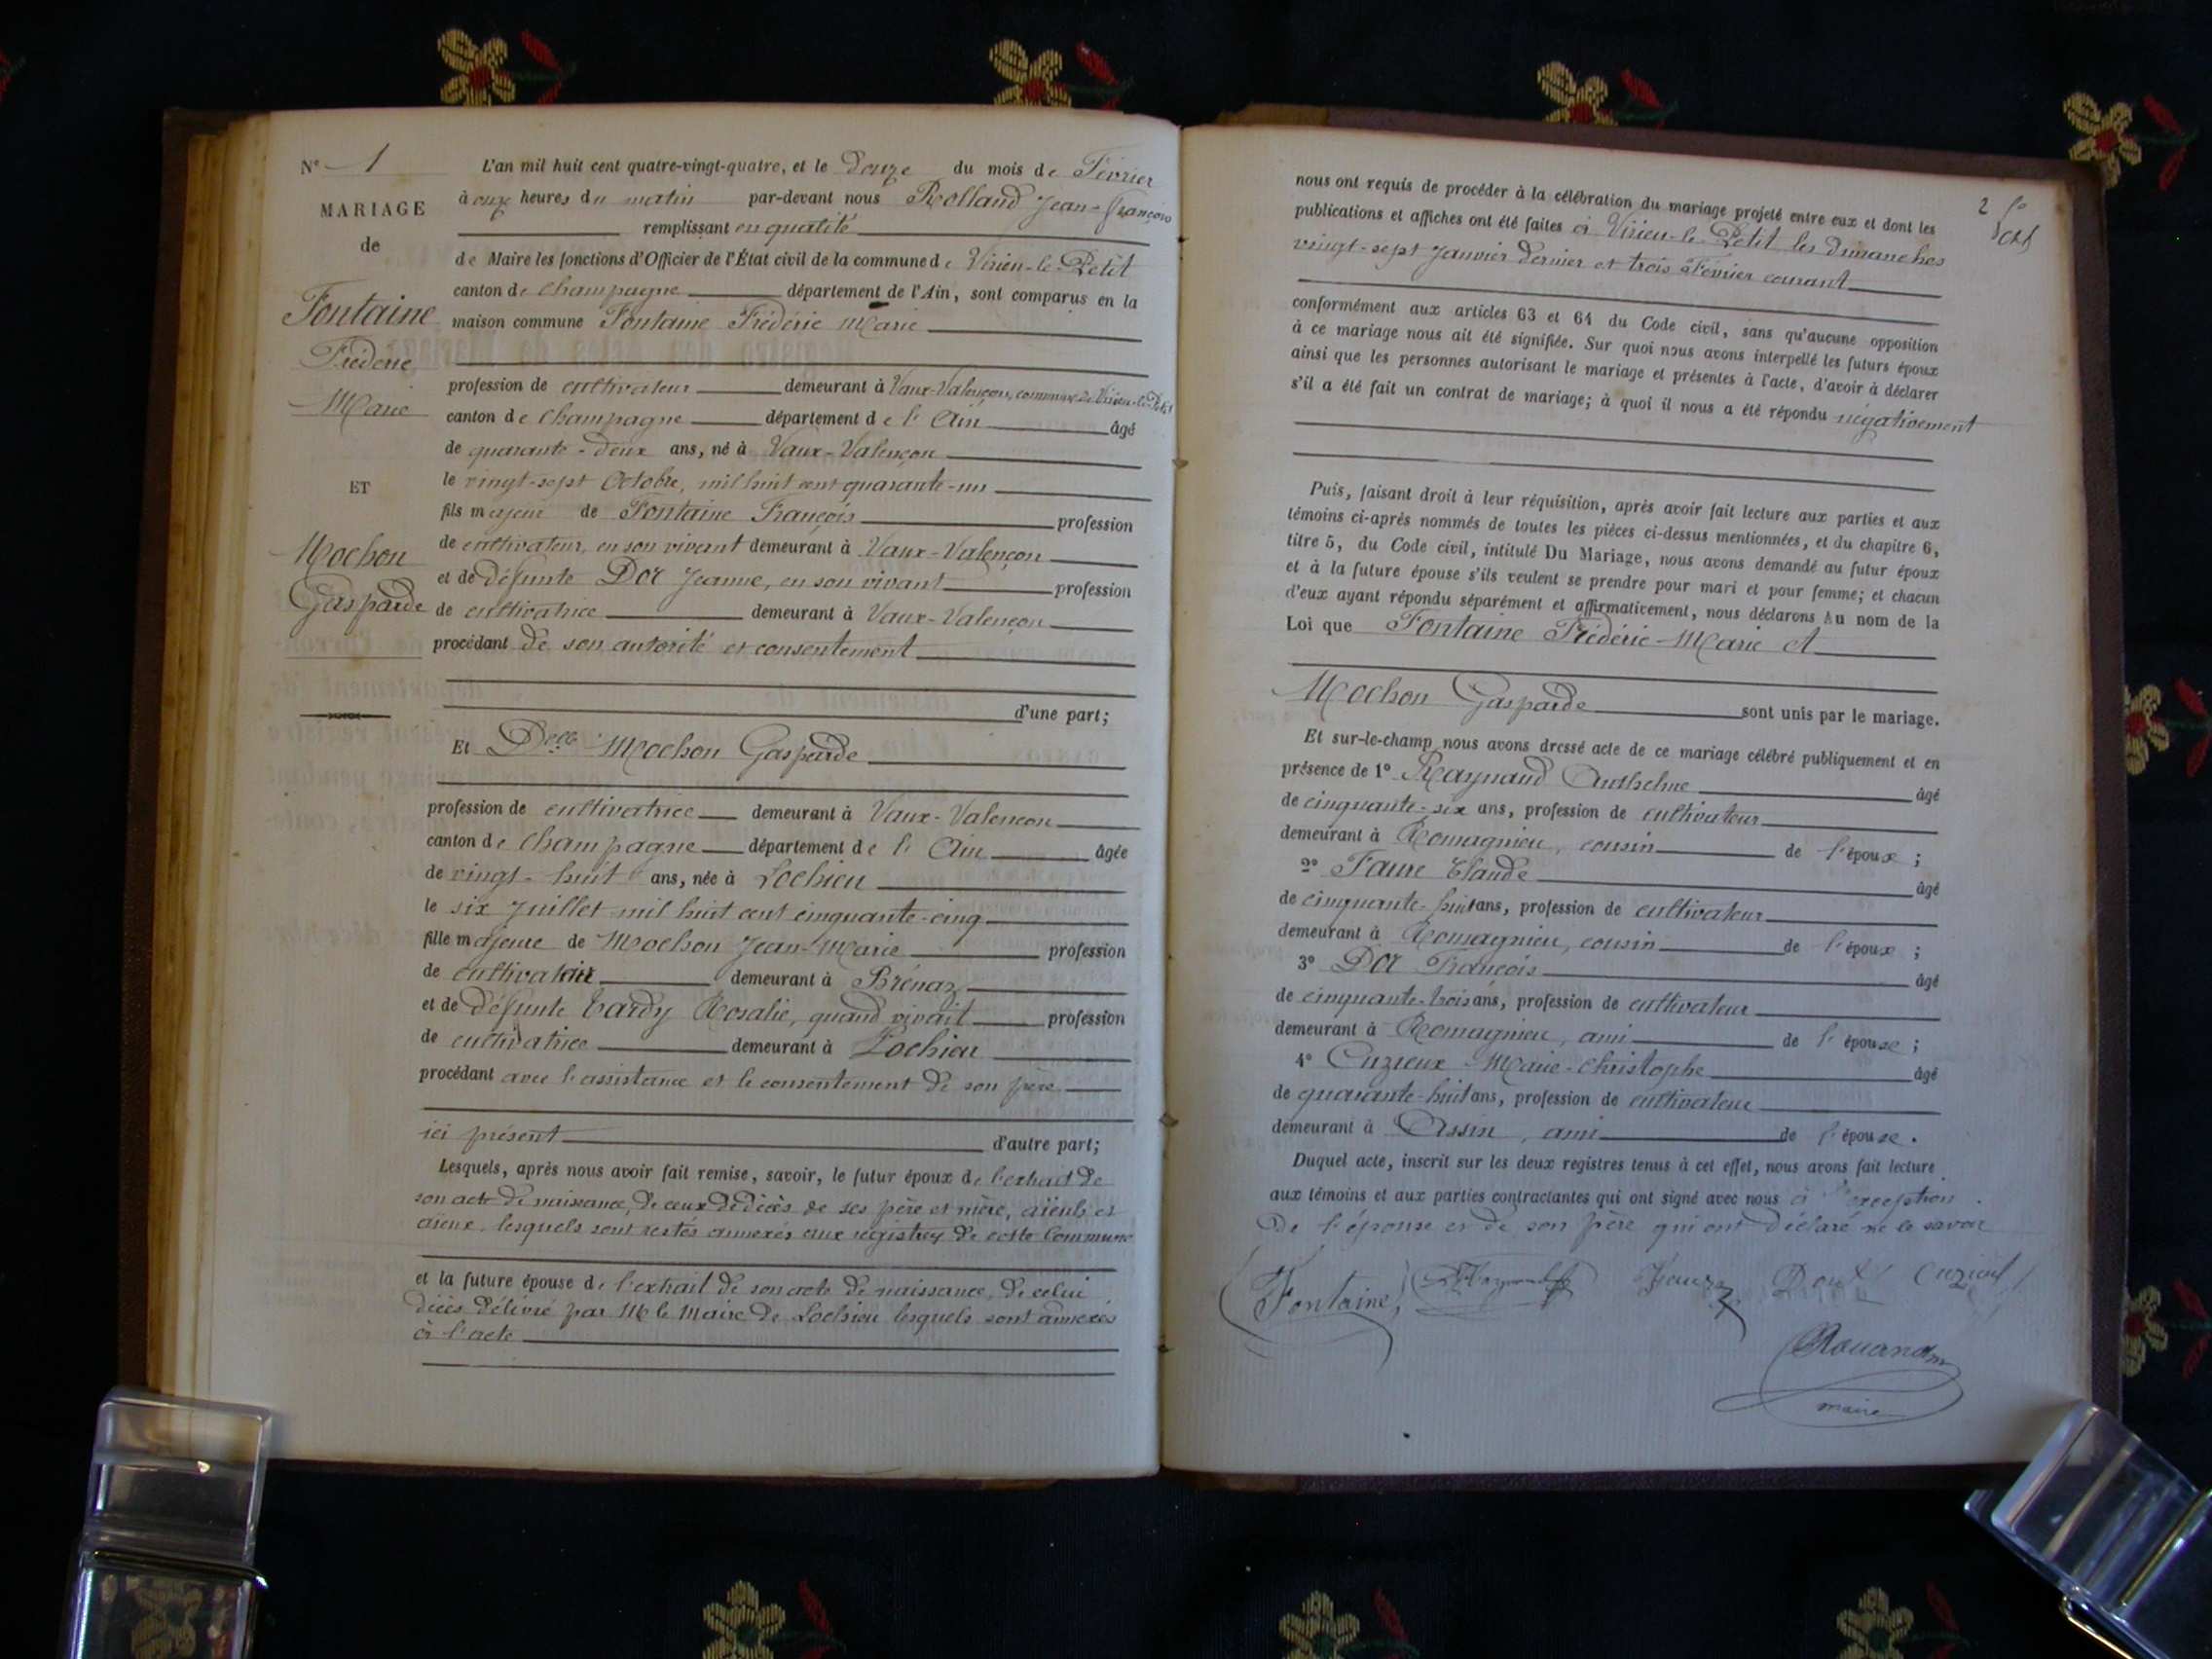 N° 1
MARIAGE
de
Fontaine
Frédéric
Marie
ET
Mochon
Gasparde
L'an mil huit cent quatre-vingt-quatre, et le douze du mois de Février
à onze heures du matin par-devant nous Rolland Jean-François
remplissant en qualité
de Maire les fonctions d'Officier de l'État civil de la commune de Virieu-le-Petit
canton de Champagne département de l'Ain, sont comparus en la
maison commune Fontaine Frédéric Marie
profession de cultivateur demeurant à Vaux-Valençon, commune de Virieu-le-Petit
canton de Champagne département de l'Ain âgé
de quarante-deux ans, né à Vaux-Valençon
le vingt-sept Octobre, mil huit cent quarante-un
fils majeur de Fontaine François profession
de cultivateur, en son vivant demeurant à Vaux-Valençon
et de défunte Dor Jeanne, en son vivant profession
de cultivatrice demeurant à Vaux-Valençon
procédant de son autorité et consentement
d'une part;
Et Delle Mochon Gasparde
profession de cultivatrice demeurant à Vaux-Valençon
canton de Champagne département de l'Ain âgée
de vingt-huit ans, née à Lochieu
le six Juillet mil huit cent cinquante-cinq
fille majeure de Mochon Jean-Marie profession
de cultivateur demeurant à Brénaz
et de défunte Tardy Rosalie, quand vivait profession
de cultivatrice demeurant à Lochieu
procédant avec l'assistance et le consentement de son père
ici présent d'autre part;
Lesquels, après nous avoir fait remise, savoir, le futur époux de l'extrait de
son acte de naissance, de ceux de décès de ses père et mère, aïeuls et
aïeux, lesquels sont restés annexés aux registres de cette Commune
et la future épouse de l'extrait de son acte de naissance, de celui
décès délivré par Mr le Maire de Lochieu lesquels sont annexés
à l'acte
2
nous ont requis de procéder à la célébration du mariage projeté entre eux et dont les
publications et affiches ont été faites à Virieu-le-Petit les dimanches
vingt-sept Janvier dernier et trois Février courant
conformément aux articles 63 et 64 du Code civil, sans qu'aucune opposition
à ce mariage nous ait été signifiée. Sur quoi nous avons interpellé les futurs époux
ainsi que les personnes autorisant le mariage et présentes à l'acte, d'avoir à déclarer
s'il a été fait un contrat de mariage; à quoi il nous a été répondu négativement
Puis, faisant droit à leur réquisition, après avoir fait lecture aux parties et aux
témoins ci-après nommés de toutes les pièces ci-dessus mentionnées, et du chapitre 6,
titre 5, du Code civil, intitulé Du Mariage, nous avons demandé au futur époux
et à la future épouse s'ils veulent se prendre pour mari et pour femme; et chacun
d'eux ayant répondu séparément et affirmativement, nous déclarons Au nom de la
Loi que Fontaine Frédéric-Marie et
Mochon Gasparde sont unis par le mariage.
Et sur-le-champ nous avons dressé acte de ce mariage célébré publiquement et en
présence de 1° Raynaud Anthelme âgé
de cinquante-six ans, profession de cultivateur
demeurant à Romagnieu, cousin de l'époux;
2° Faure Claude âgé
de cinquante-huit ans, profession de cultivateur
demeurant à Romagnieu, cousin de l'époux;
3° Dor François âgé
de cinquante-trois ans, profession de cultivateur
demeurant à Romagnieu, ami de l'épouse;
4° Cuzieux Marie-Christophe âgé
de quarante-huit ans, profession de cultivateur
demeurant à Assin, ami de l'épouse.
Duquel acte, inscrit sur les deux registres tenus à cet effet, nous avons fait lecture
aux témoins et aux parties contractantes qui ont signé avec nous à l'exception
de l'épouse et de son père qui ont déclaré ne le savoir
Fontaine
maire